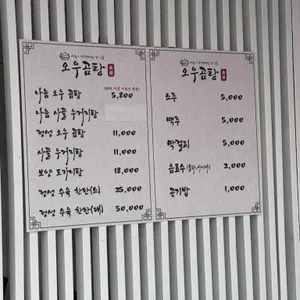 오우곰탕
나눔 오우 곰탕 5,800
나눔 아롱 우거지탕
한우 오우 곰탕 11,000
아롱 우거지탕 11,000
보양 도가니탕 18,000
수육 한판(소) 25,000
수육 한판(대) 50,000
오우곰탕
소주 5,000
맥주 5,000
막걸리 5,000
음료수 2,000
공기밥 1,000